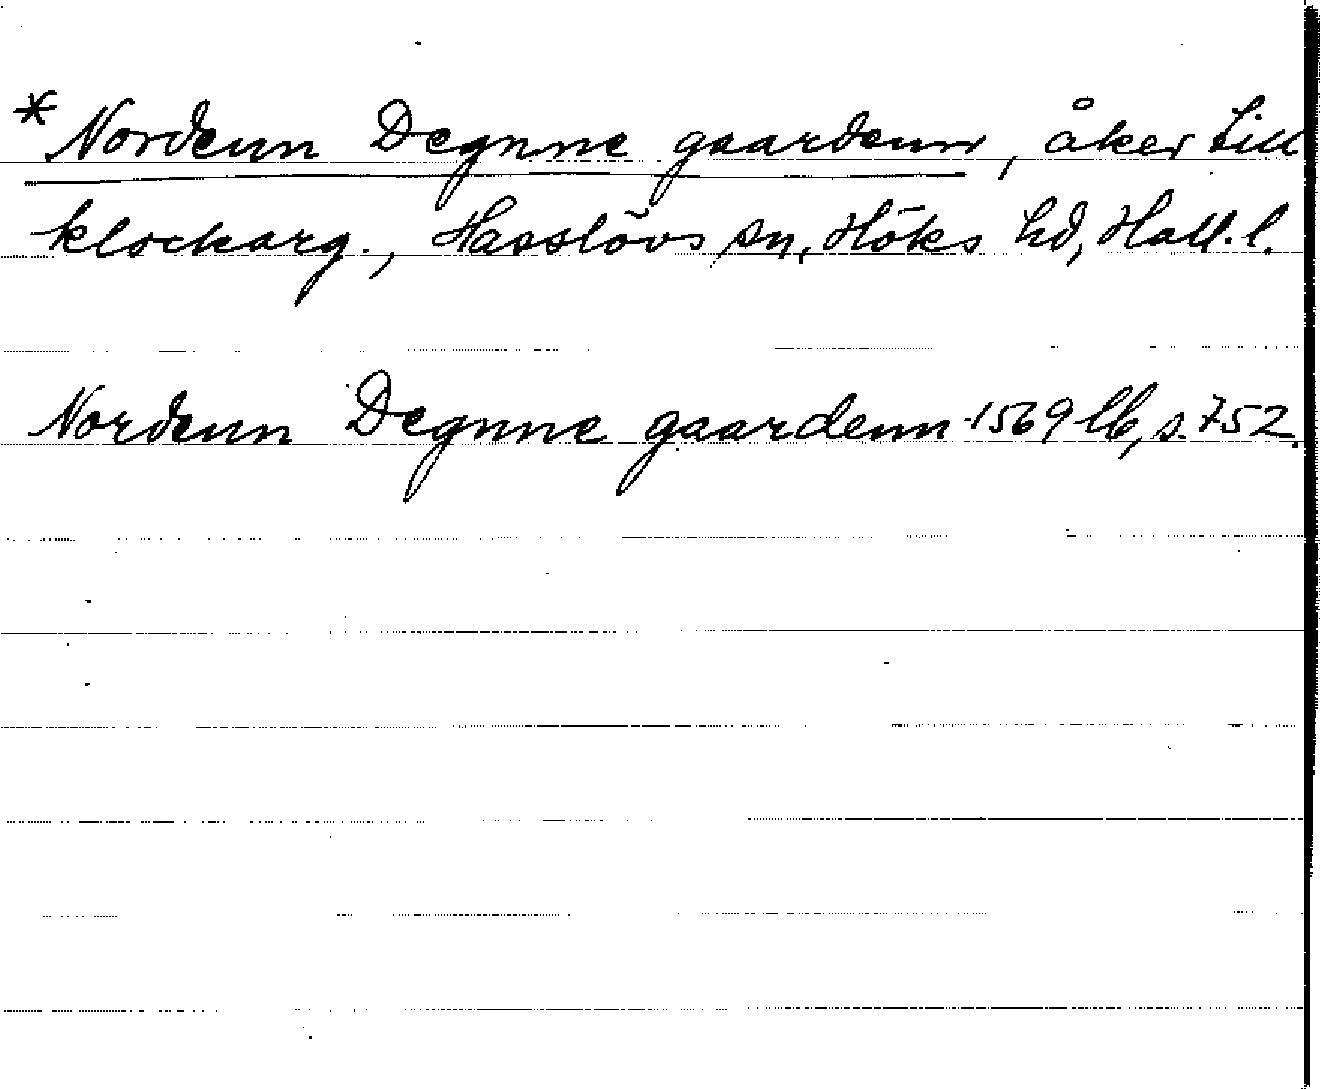 *Nordenn Degnne gaardenn, åker till
klockarg., Hasslövs sn, Höks hd, Hall. l.
Nordenn Degnne gaardenn 1569 lb, s. 752.